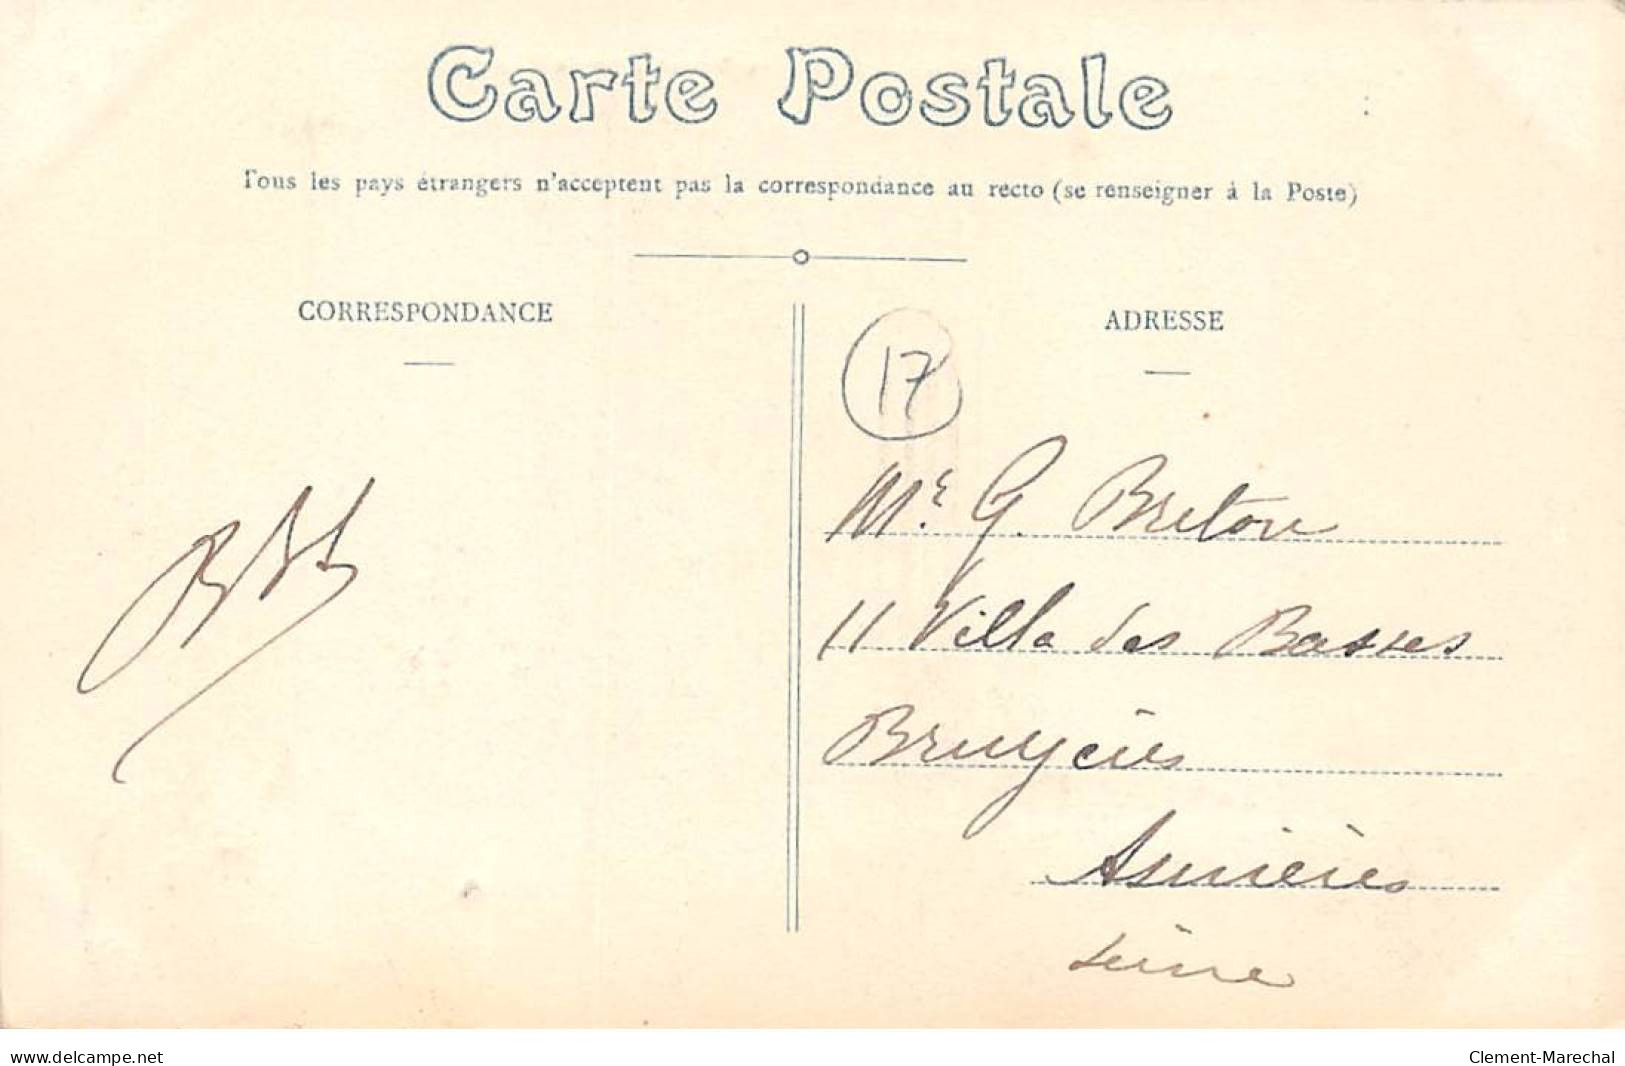 Carte Postale
Tous les pays étrangers n'acceptent pas la correspondance au recto (se renseigner à la Poste)
CORRESPONDANCE
ADRESSE
17
Mr. G. Breton
11 Villa des Basses
Bruyères
Asnières
Seine
www.delcampe.net
Clement-Marechal